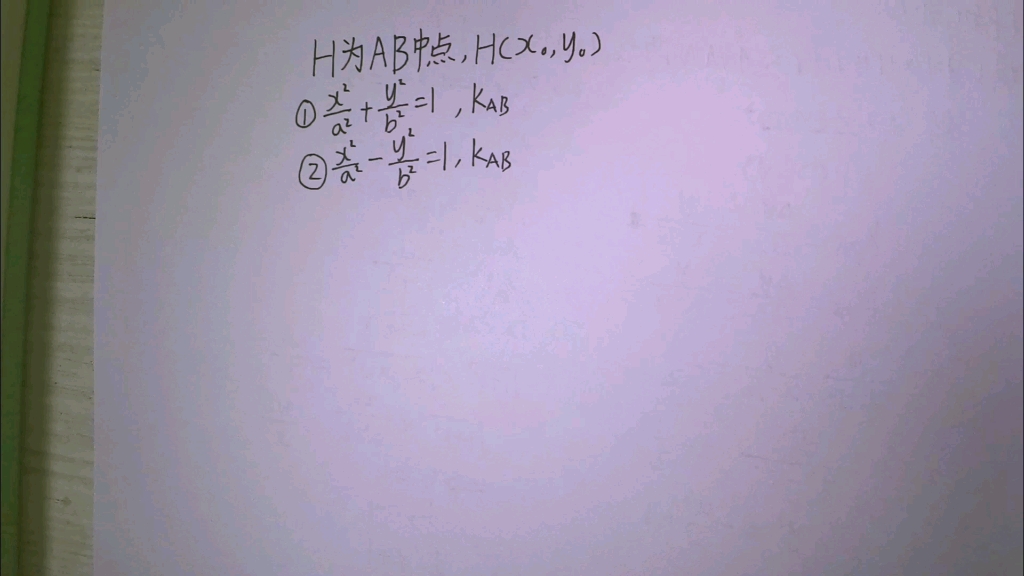 H为AB中点,H(x₀,y₀)
① x²/a² + y²/b² = 1 , KAB
② x²/a² - y²/b² = 1 , KAB